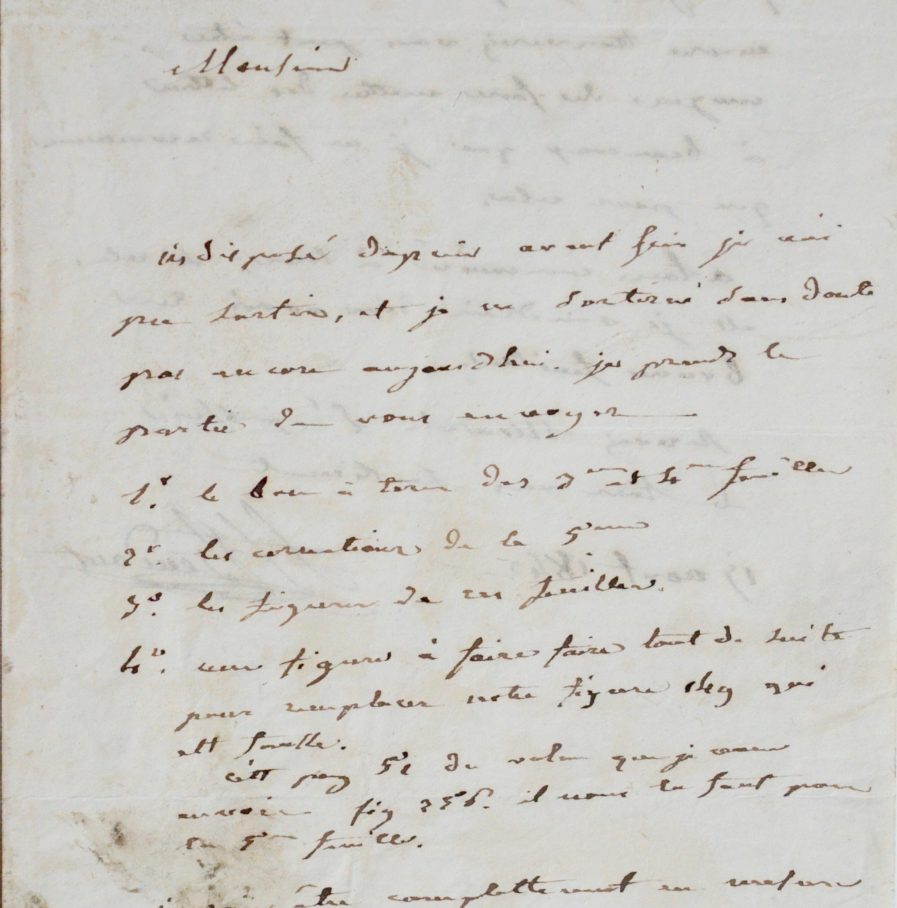 Monsieur
indisposé depuis avant hier je n'ai
pu sortir, et je ne sortirai sans doute
pas encore aujourdhui. je prends le
partie de vous envoyer
1°. le bon à tirer des 3me et 4me feuilles
2°. les corrections de la 5me
3°. les figures de ces feuilles.
4°. une figure à faire faire tout de suite
pour remplacer notre figure qui
est fausse.
c'est pag 51 du volume que je vous
envoie fig 256. il nous la faut pour
la 5me feuille.
être complettement en mesure